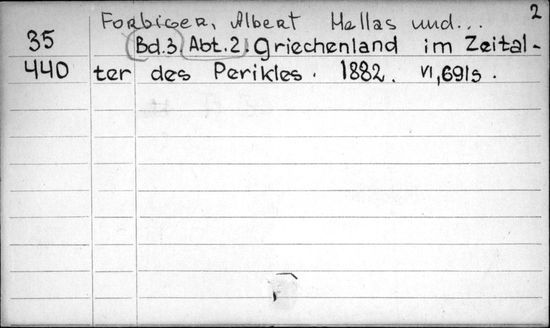 2
Forbiger, Albert Hellas und...
35 Bd.3, Abt.2. Griechenland im Zeital-
440 ter des Perikles. 1882. VI, 691s.